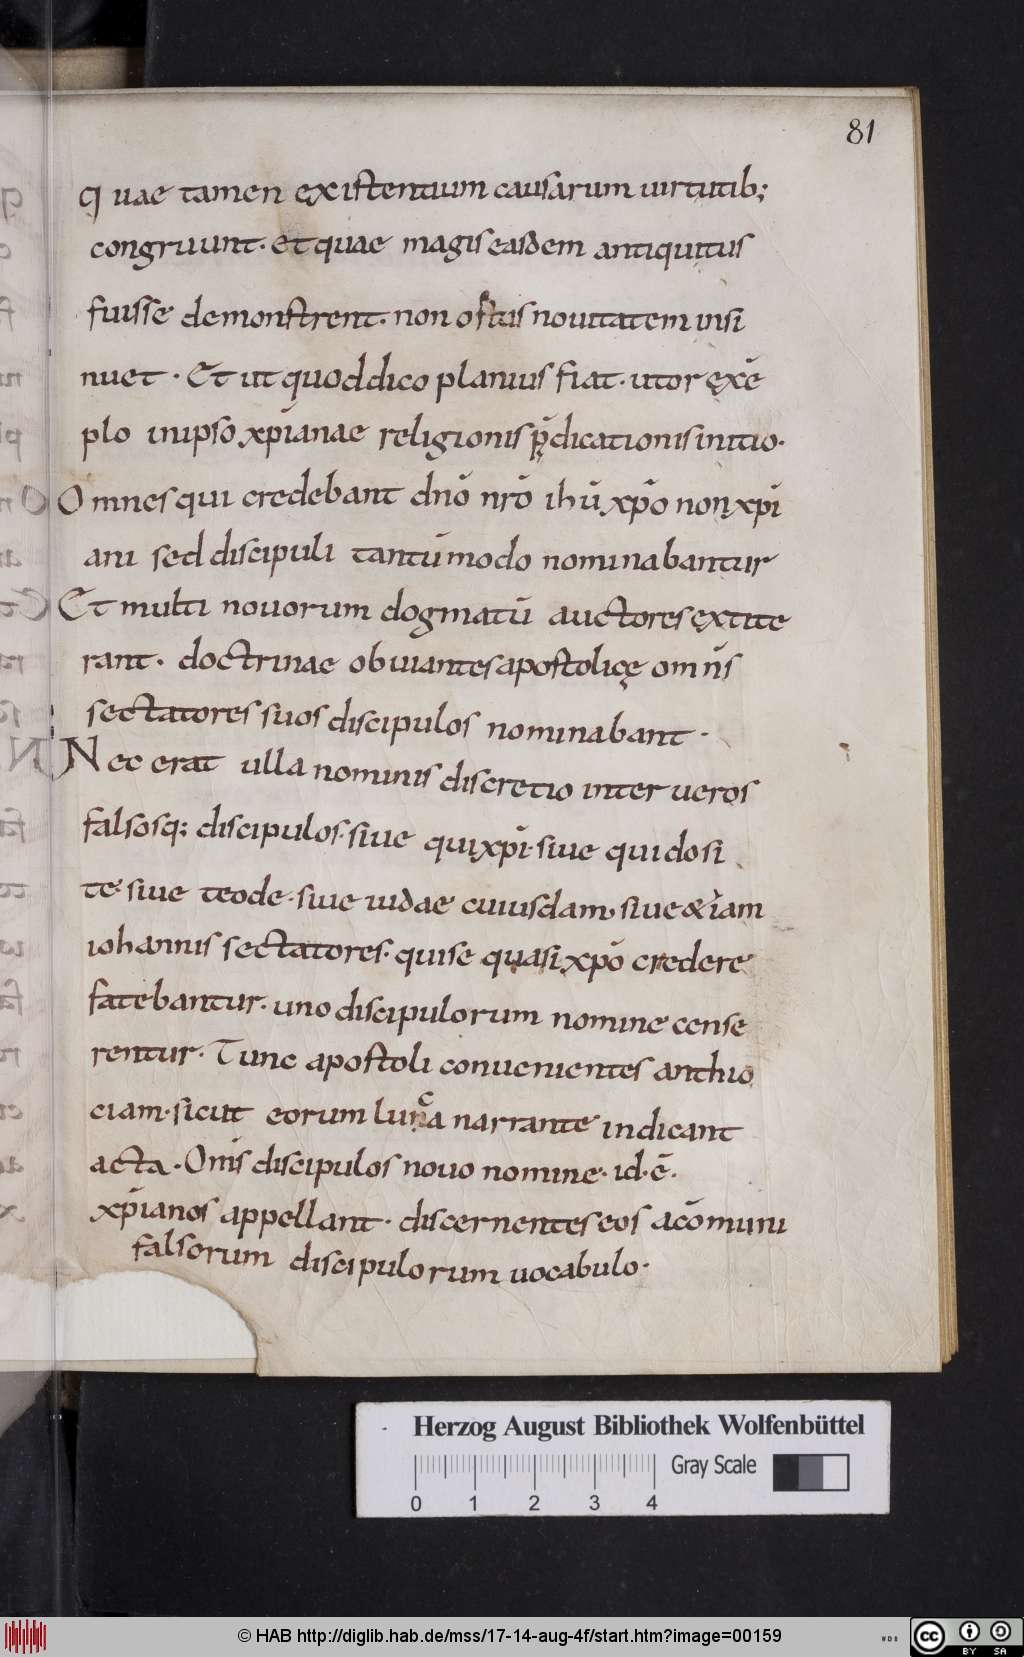 81
Quae tamen existentium causarum uirtutib;
congruunt. et quae magis easdem antiquitus
fuisse demonstrent. non ostus nouitatem insi
nuet. Et ut quod dico planius fiat. utor exē
plo in ipso xp̄ianae religionis p̄dicationis initio.
Omnes qui credebant dn̄o nr̄o ihū xp̄o non xp̄i
ani sed discipuli tantūmodo nominabantur
Et multi nouorum dogmatū auctores extite
rant. doctrinae obuiantes apostolicę omn̄s
sectatores suos discipulos nominabant.
Nec erat ulla nominis discretio inter ueros
falsosq; discipulos. siue qui xp̄i. siue qui dosi
te. siue teode. siue iudae cuiusdam. siue &iam
iohannis sectatores. qui se quasi xp̄o credere
fatebantur. uno discipulorum nomine cense
rentur. Tunc apostoli conuenientes anthio
ciam. sicut eorum luca narrante indicant
acta. Om̄s discipulos nouo nomine. id. ē.
xp̄ianos appellant. discernentes eos a cōmuni
falsorum discipulorum uocabulo.
Herzog August Bibliothek Wolfenbüttel
Gray Scale
0 1 2 3 4
© HAB http://diglib.hab.de/mss/17-14-aug-4f/start.htm?image=00159
WDB
cc BY SA